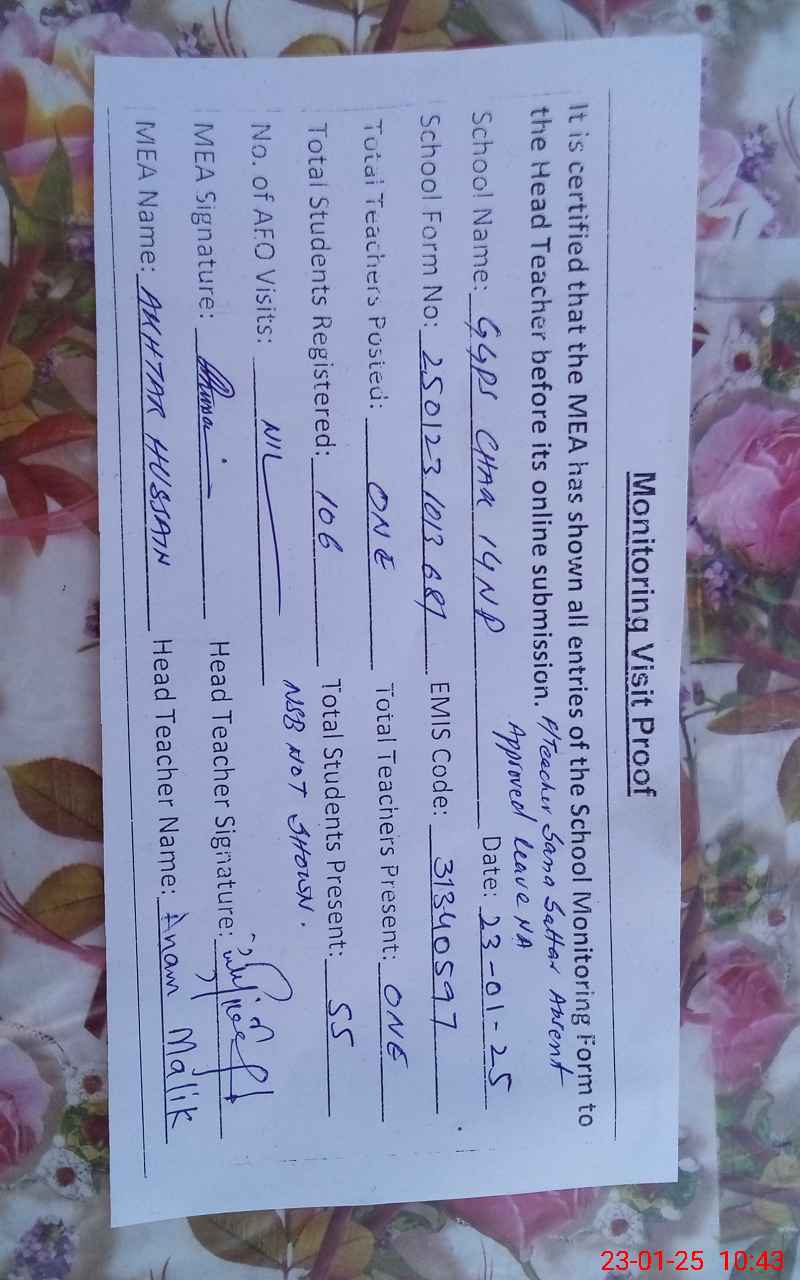 Monitoring Visit Proof
It is certified that the MEA has shown all entries of the School Monitoring Form to
the Head Teacher before its online submission. P/Teacher Sana Sattar Absent
Approved leave NA
School Name: GGPS CHAK 14NP Date: 23-01-25
School Form No: 250123 1013 687 EMIS Code: 31340597
Total Teachers Posted: ONE Total Teachers Present: ONE
Total Students Registered: 106 Total Students Present: 55
No. of AEO Visits: NIL NSB NOT SHOWN.
MEA Signature: Head Teacher Signature:
MEA Name: AKHTAR HUSSAIN Head Teacher Name: Anam Malik
23-01-25 10:43